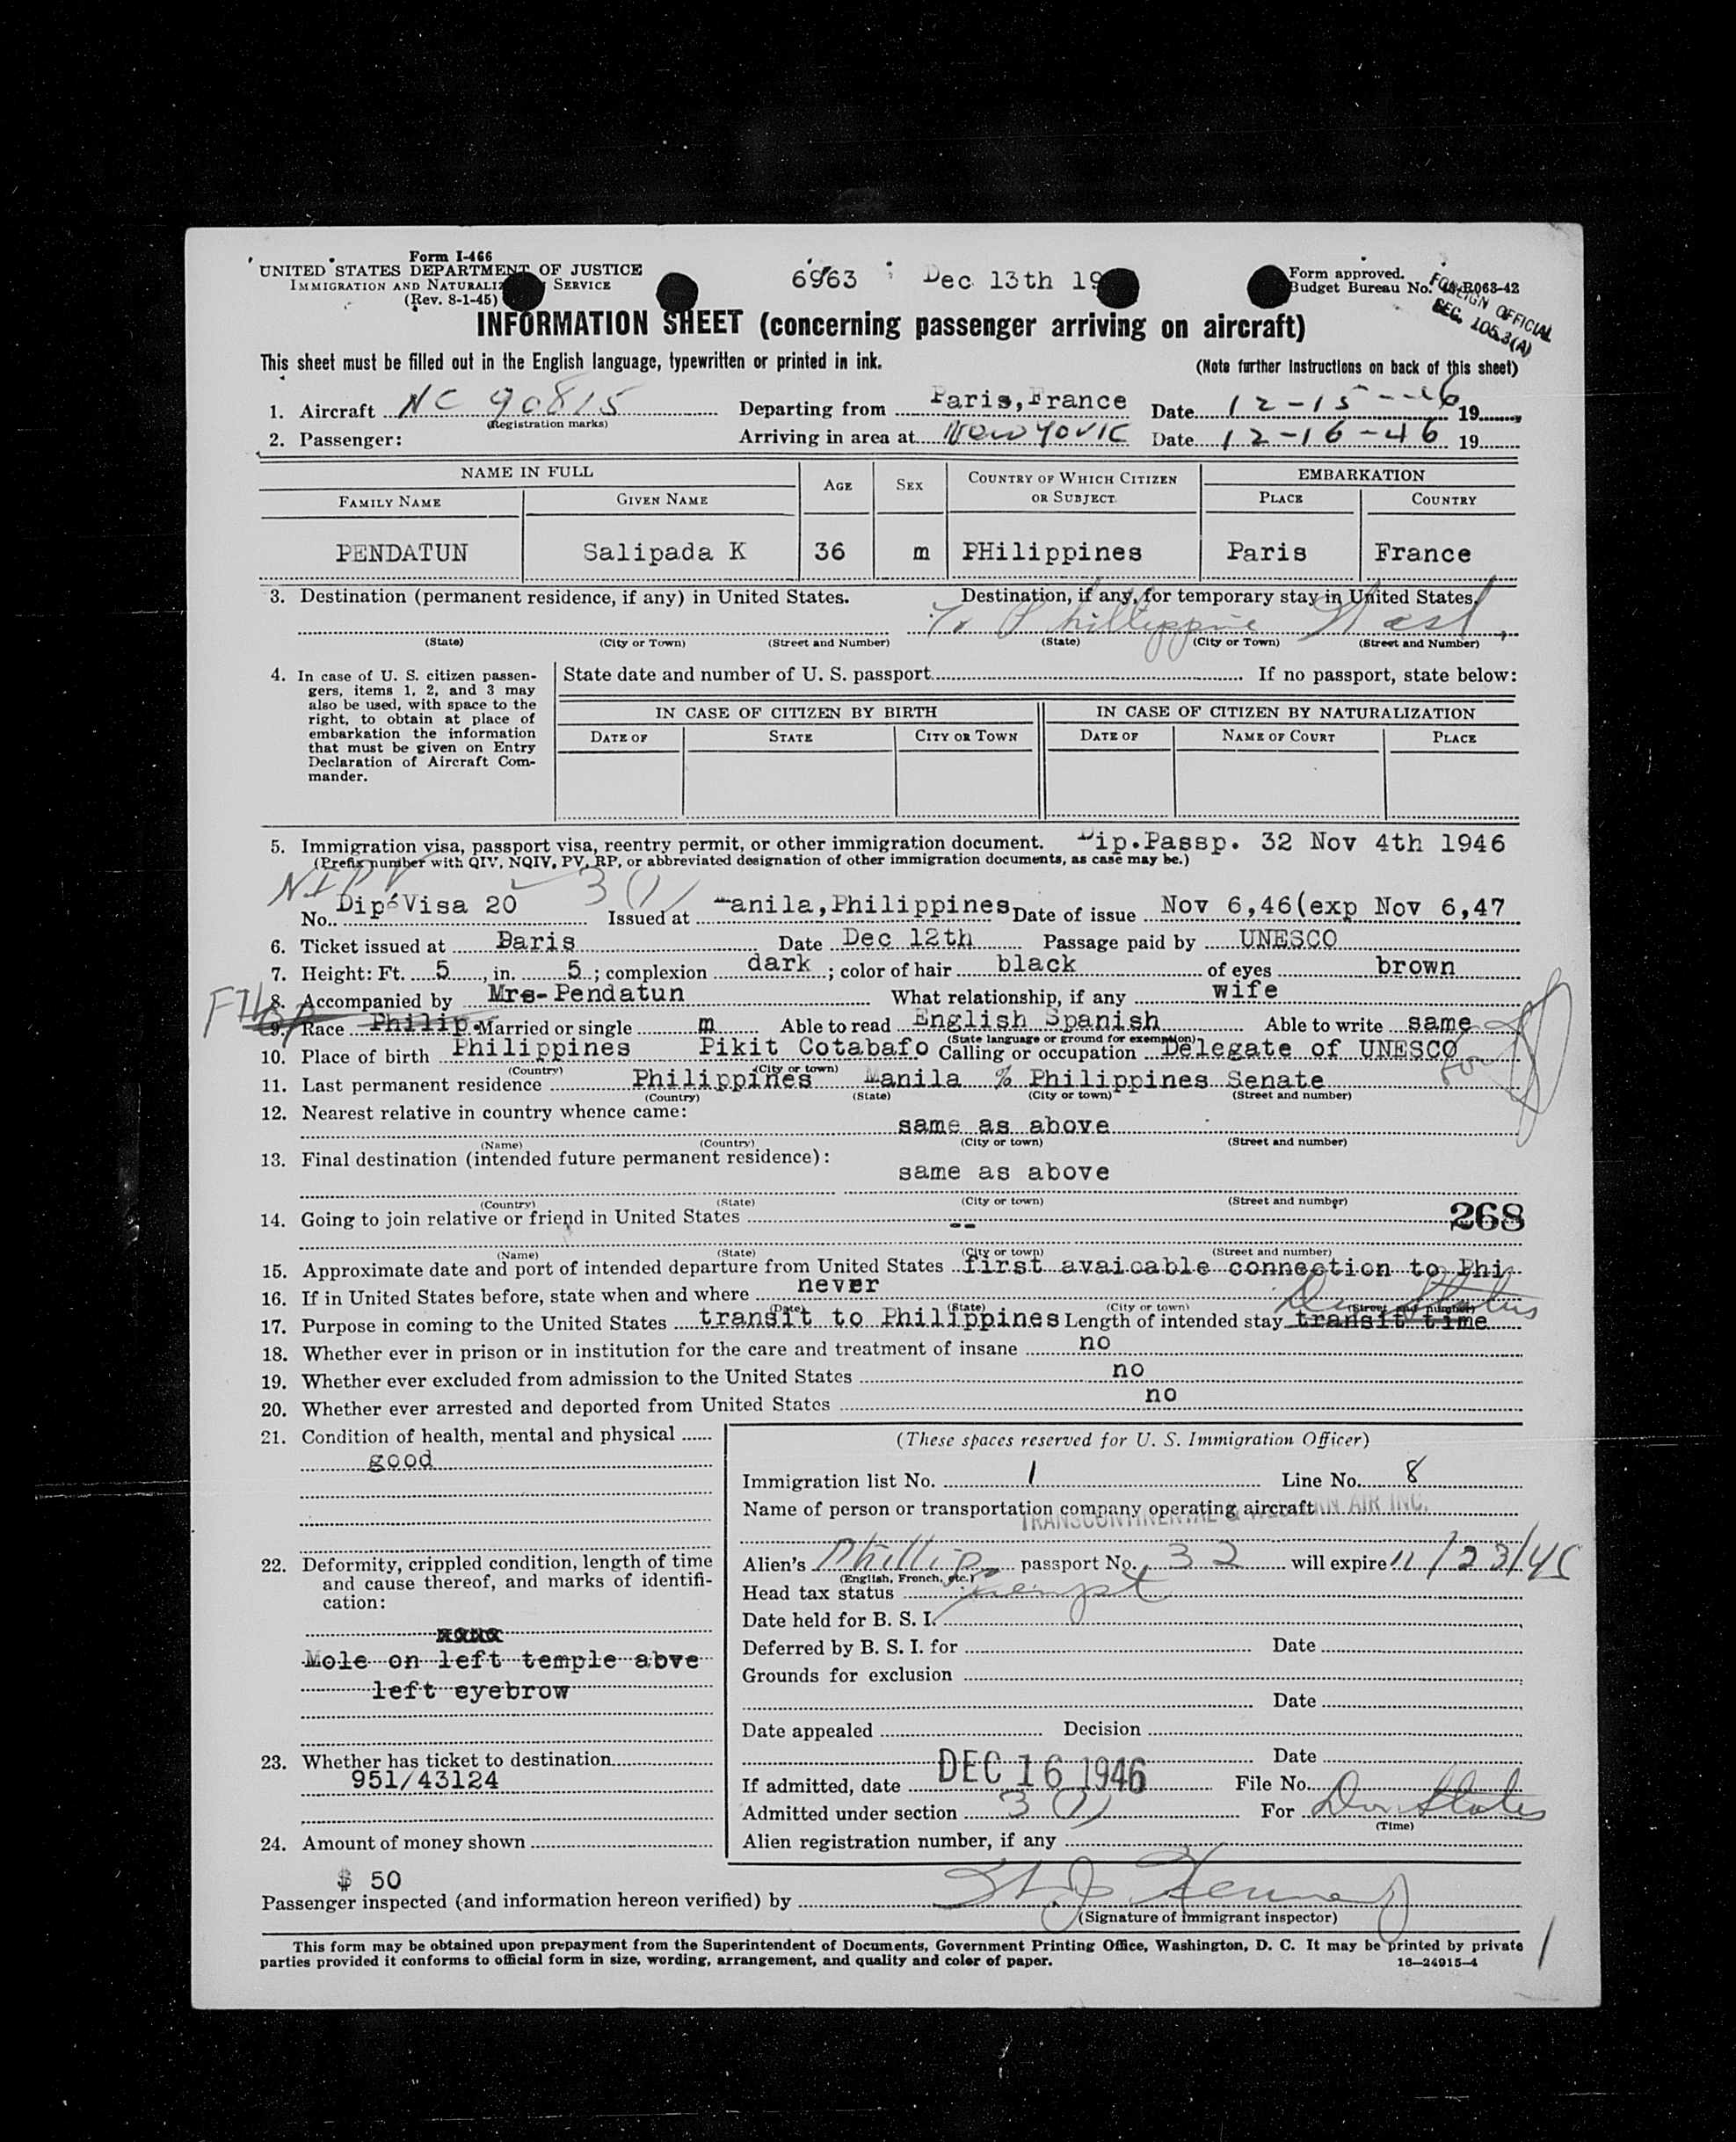 Form I-466
UNITED STATES DEPARTMENT OF JUSTICE
IMMIGRATION AND NATURALIZ SERVICE
(Rev. 8-1-45)
6963 Dec 13th 19
Form approved.
Budget Bureau No. R063-42
FOREIGN OFFICIAL
SEC. 105.3(A)
INFORMATION SHEET (concerning passenger arriving on aircraft)
This sheet must be filled out in the English language, typewritten or printed in ink. (Note further instructions on back of this sheet)
1. Aircraft NC 90815 Departing from Paris, France Date 12-15--46 19
(Registration marks)
2. Passenger: Arriving in area at New York Date 12-16-46 19
NAME IN FULL AGE SEX COUNTRY OF WHICH CITIZEN OR SUBJECT EMBARKATION
FAMILY NAME GIVEN NAME PLACE COUNTRY
PENDATUN Salipada K 36 m PHilippines Paris France
3. Destination (permanent residence, if any) in United States. Destination, if any, for temporary stay in United States.
Phillippine
(State) (City or Town) (Street and Number) (State) (City or Town) (Street and Number)
4. In case of U. S. citizen passen-
gers, items 1, 2, and 3 may
also be used, with space to the
right, to obtain at place of
embarkation the information
that must be given on Entry
Declaration of Aircraft Com-
mander.
State date and number of U. S. passport If no passport, state below:
IN CASE OF CITIZEN BY BIRTH IN CASE OF CITIZEN BY NATURALIZATION
DATE OF STATE CITY OR TOWN DATE OF NAME OF COURT PLACE
5. Immigration visa, passport visa, reentry permit, or other immigration document. Dip.Passp. 32 Nov 4th 1946
(Prefix number with QIV, NQIV, PV, RP, or abbreviated designation of other immigration documents, as case may be.)
3(1)
No. Dip Visa 20 Issued at Manila,Philippines Date of issue Nov 6,46(exp Nov 6,47
6. Ticket issued at Paris Date Dec 12th Passage paid by UNESCO
7. Height: Ft. 5, in. 5; complexion dark; color of hair black of eyes brown
8. Accompanied by Mrs-Pendatun What relationship, if any wife
9. Race Philip. Married or single m Able to read English Spanish Able to write same
(State language or ground for exemption)
10. Place of birth Philippines Pikit Cotabafo Calling or occupation Delegate of UNESCO
(Country) (City or town)
11. Last permanent residence Philippines Manila % Philippines Senate
(Country) (State) (City or town) (Street and number)
12. Nearest relative in country whence came:
same as above
(Name) (Country) (City or town) (Street and number)
13. Final destination (intended future permanent residence):
same as above
(Country) (State) (City or town) (Street and number)
14. Going to join relative or friend in United States -- 268
(Name) (State) (City or town) (Street and number)
15. Approximate date and port of intended departure from United States first avaicable connection to Phi
16. If in United States before, state when and where never
(Date) (State) (City or town) (Street and number)
17. Purpose in coming to the United States transit to Philippines Length of intended stay transit time
18. Whether ever in prison or in institution for the care and treatment of insane no
19. Whether ever excluded from admission to the United States no
20. Whether ever arrested and deported from United States no
21. Condition of health, mental and physical
good
22. Deformity, crippled condition, length of time
and cause thereof, and marks of identifi-
cation:
Mole on left temple abve
left eyebrow
23. Whether has ticket to destination
951/43124
24. Amount of money shown
$ 50
(These spaces reserved for U. S. Immigration Officer)
Immigration list No. 1 Line No. 8
Name of person or transportation company operating aircraft
TRANSCONTINENTAL & WESTERN AIR INC.
Alien's Phillip passport No. 32 will expire 11/23/48
(English, French, etc.)
Head tax status Exempt
Date held for B. S. I.
Deferred by B. S. I. for Date
Grounds for exclusion
Date
Date appealed Decision
Date
If admitted, date DEC 16 1946 File No.
Admitted under section 3(1) For Dur Status
(Time)
Alien registration number, if any
Passenger inspected (and information hereon verified) by
(Signature of immigrant inspector)
This form may be obtained upon prepayment from the Superintendent of Documents, Government Printing Office, Washington, D. C. It may be printed by private
parties provided it conforms to official form in size, wording, arrangement, and quality and color of paper. 16—24915-4